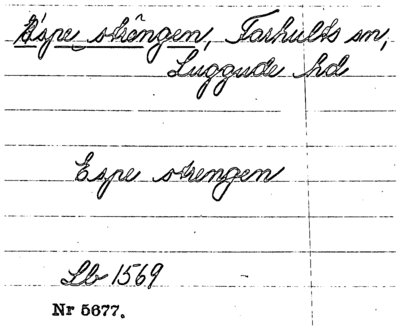 Espe strengen, Farhults sn,
Luggude hd
Espe strengen
Lb 1569
Nr 5677.